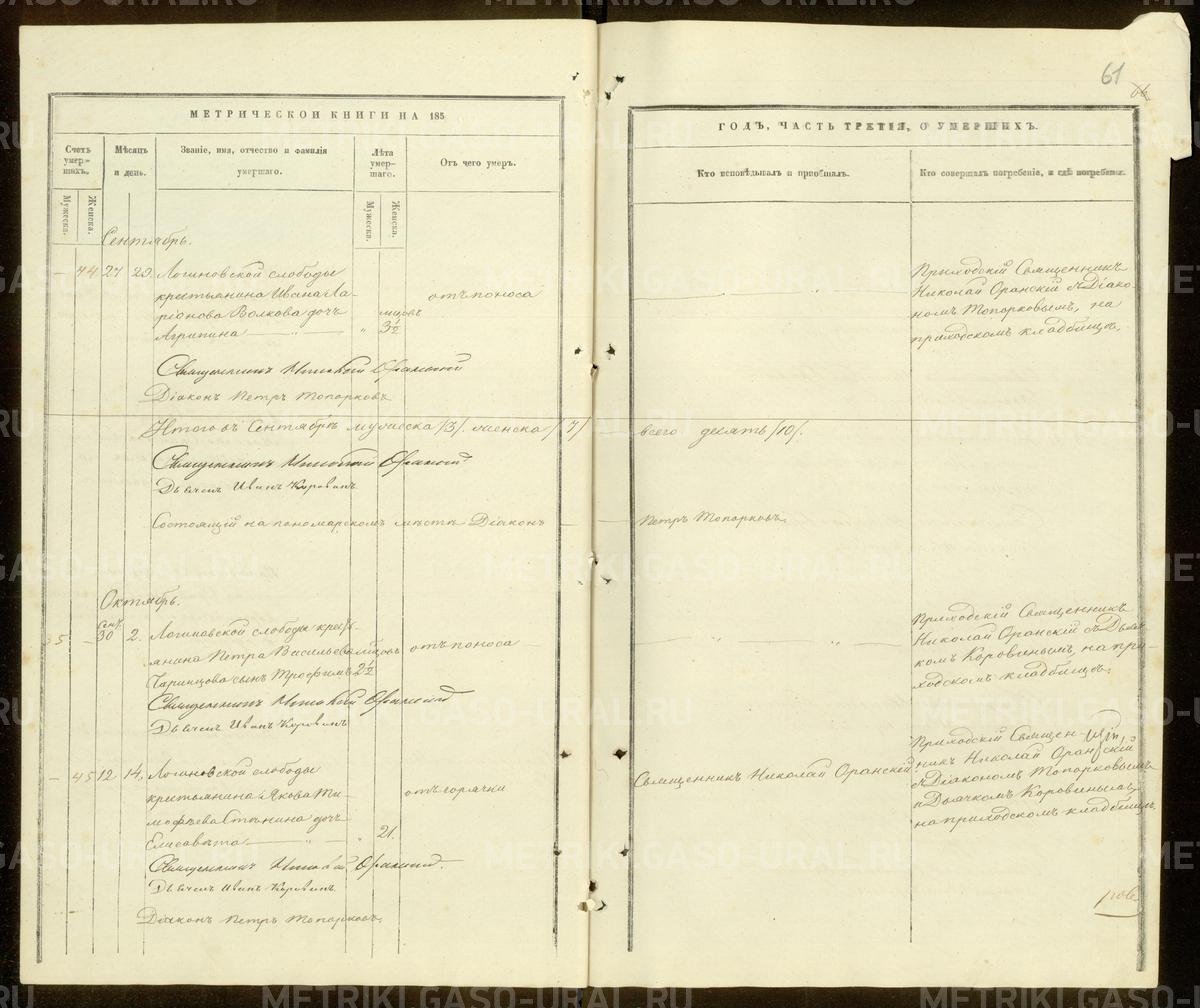 61
МЕТРИЧЕСКОЙ КНИГИ НА 185
ГОДЪ, ЧАСТЬ ТРЕТІЯ, О УМЕРШИХЪ.
Счетъ умер-шихъ.
Мѣсяцъ и день.
Званіе, имя, отчество и фамилія умершаго.
Лѣта умер-шаго.
Отъ чего умеръ.
Кто исповѣдывалъ и пріобщалъ.
Кто совершалъ погребеніе, и гдѣ погребены.
Мужеска.
Женска.
Мужеска.
Женска.
Сентябрь.
— 44 27 29. Логиновской слободы
крестьянина Ивана Ла-
ріонова Волкова дочь
Агрипина
мѣсцовъ
3½
отъ поноса
Приходскій Священникъ
Николай Оранскій съ Діако-
номъ Топорковымъ, на
приходскомъ кладбищѣ.
Священникъ Николай Оранскій
Діаконъ Петръ Топорковъ
Итого въ Сентябрѣ мужеска /3/. женска /7/
всего десять /10/.
Священникъ Николай Оранскій
Дьячекъ Иванъ Коровинъ
Состоящій на пономарскомъ мѣстѣ Діаконъ
Петръ Топорковъ.
Октябрь.
35 — Сент. 30 2. Логиновской слободы кресть-
янина Петра Васильева
сынъ Трофимъ
мѣсцовъ
2½
отъ поноса
Приходскій Священникъ
Николай Оранскій съ Дьяч-
комъ Коровинымъ, на при-
ходскомъ кладбищѣ.
Священникъ Николай Оранскій
Дьячекъ Иванъ Коровинъ
— 45 12 14. Логиновской слободы
крестьянина Якова Ти-
мофѣева дочь
Елисавета
21.
отъ горячки
Священникъ Николай Оранскій
Приходскій Священ-
никъ Николай Оранскій
съ Діакономъ Топорковымъ
и Дьячкомъ Коровинымъ,
на приходскомъ кладбищѣ.
Священникъ Николай Оранскій
Дьячекъ Иванъ Коровинъ
Діаконъ Петръ Топорковъ.
METRIKI.GASO-URAL.RU